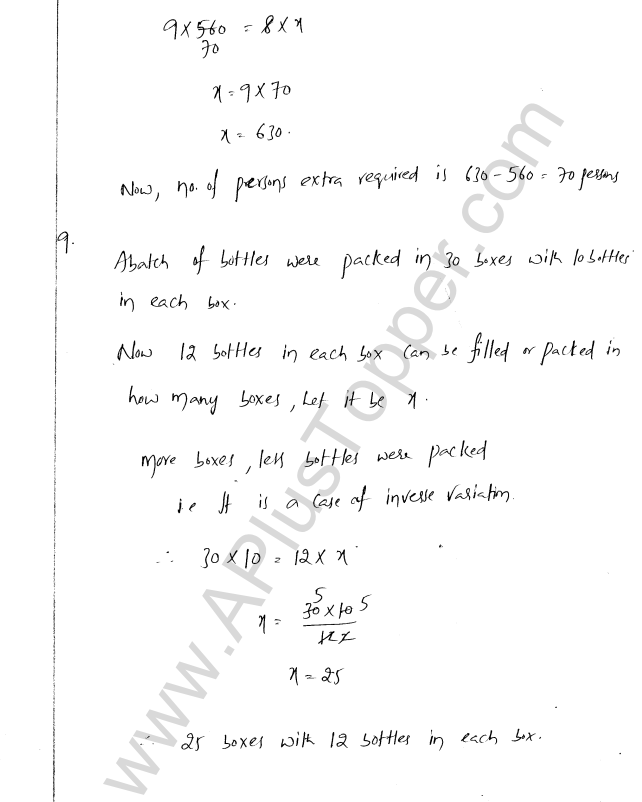 9 × 560 = 8 × x
70
x = 9 × 70
x = 630.
Now, no. of persons extra required is 630 - 560 = 70 persons
9.
A batch of bottles were packed in 30 boxes with 10 bottles
in each box.
Now 12 bottles in each box can be filled or packed in
how many boxes, Let it be x.
More boxes, less bottles were packed
i.e It is a case of inverse variation.
∴ 30 × 10 = 12 × x
5
x = 30 × 10 5
12 2
x = 25
∴ 25 boxes with 12 bottles in each box.
www.APlusTopper.com